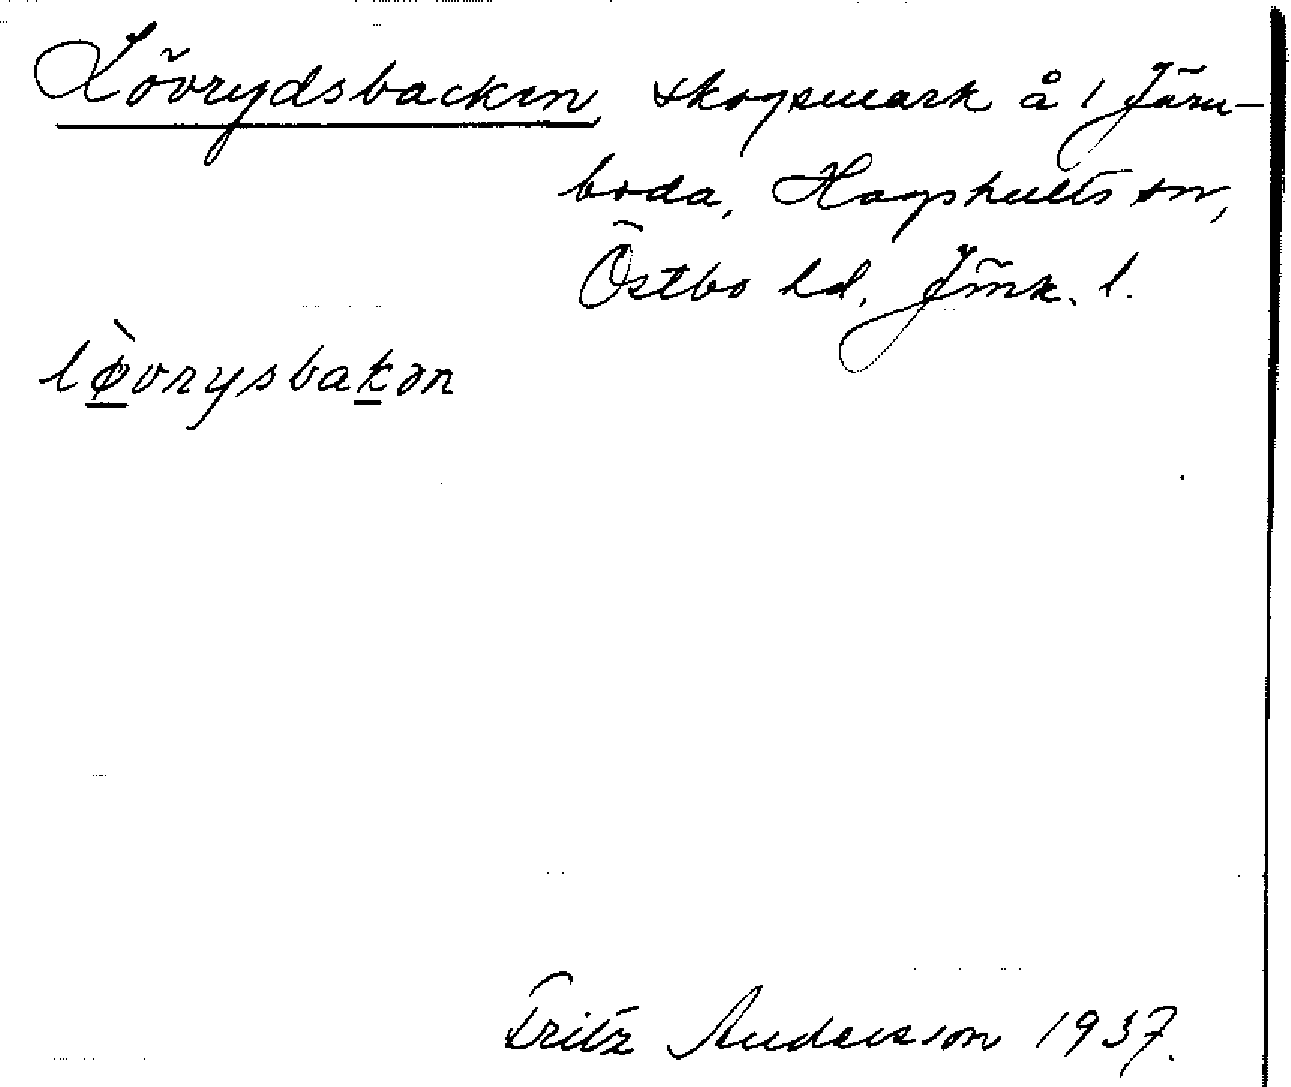 Lövrydsbacken, skogsmark å 1 Järn-
boda, Hagshults sn,
Östbo hd, Jönk. l.
lø̀vrysbakən
Fritz Andersson 1937.